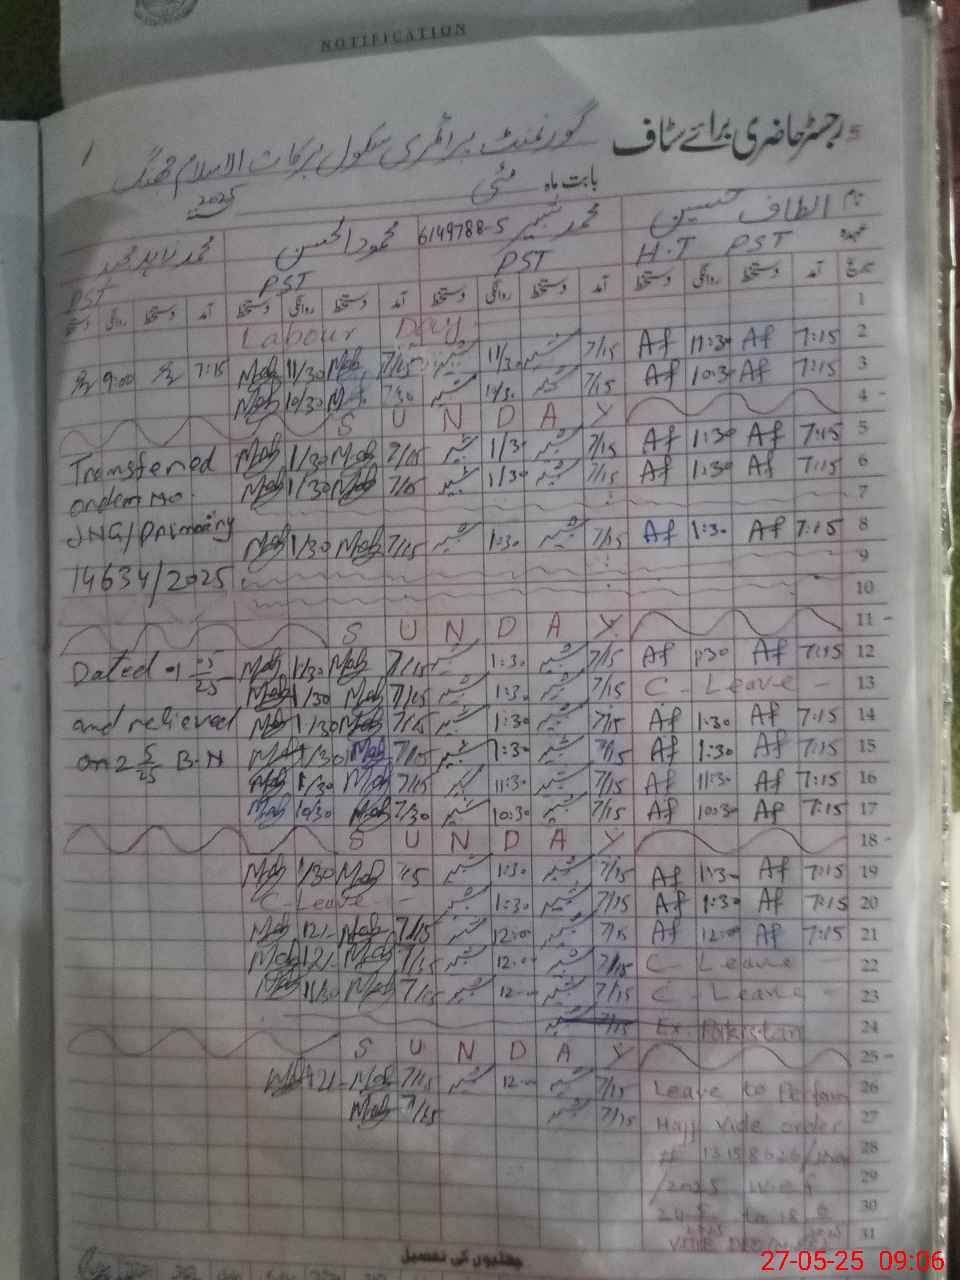 NOTIFICATION
رجسٹر حاضری برائے سٹاف گورنمنٹ پرائمری سکول برکات الاسلام جھنگ
1 5
بابت ماہ مئی 2025
نام الطاف حسین محمد شبیر 6149788-5 محمود الحسن محمد
عہدہ H.T PST PST PST PST
تاریخ آمد دستخط روانگی دستخط آمد دستخط روانگی دستخط آمد دستخط روانگی دستخط آمد دستخط روانگی دستخط
Labour Day 1
9:00 7:15 Mah 11/30 Mah 7/15 شبیر 11/30 شبیر 7/15 Af 11:30 Af 7:15 2
Mah 10/30 7/30 شبیر 10/30 شبیر 7/15 Af 10:30 Af 7:15 3
S U N D A Y 4 -
Transferred Mah 1/30 Mah 7/15 شبیر 1/30 شبیر 7/15 Af 1:30 Af 7:15 5
order no. Mah 1/30 Mah 7/15 شبیر 1/30 شبیر 7/15 Af 1:30 Af 7:15 6
7
JNG/primary Mah 1/30 Mah 7/15 شبیر 1:30 شبیر 7/15 Af 1:30 Af 7:15 8
9
14634/2025 10
S U N D A Y 11 -
Dated 01 05/25 Mah 1/30 Mah 7/15 شبیر 1:30 شبیر 7/15 Af 1:30 Af 7:15 12
Mah 1/30 Mah 7/15 شبیر 1:30 شبیر 7/15 C - Leave - 13
and relieved Mah 1/30 Mah 7/15 شبیر 1:30 شبیر 7/15 Af 1:30 Af 7:15 14
on 2 5/25 B.N Mah 1/30 Mah 7/15 شبیر 1:30 شبیر 7/15 Af 1:30 Af 7:15 15
Mah 1/30 Mah 7/15 شبیر 11:30 شبیر 7/15 Af 11:30 Af 7:15 16
Mah 10/30 Mah 7/30 شبیر 10:30 شبیر 7/15 Af 10:30 Af 7:15 17
S U N D A Y 18 -
Mah 1/30 Mah شبیر 1:30 شبیر 7/15 Af 1:30 Af 7:15 19
C - Leave - شبیر 1:30 شبیر 7/15 Af 1:30 Af 7:15 20
Mah 12/- Mah 7/15 شبیر 12:00 شبیر 7/15 Af 12:00 Af 7:15 21
Mah 12/- Mah 7/15 شبیر 12:00 شبیر 7/15 C - Leave - 22
Mah 11/30 Mah 7/15 شبیر 12:00 شبیر 7/15 C - Leave - 23
شبیر 7/15 Ex. Pakistan 24
S U N D A Y 25 -
Mah 12/- Mah 7/15 شبیر 12:00 شبیر 7/15 Leave to Perform 26
Mah 7/15 شبیر 7/15 Hajj vide order 27
28
/2025 w.e.f 29
30
31
چھٹیوں کی تفصیل
27-05-25 09:06